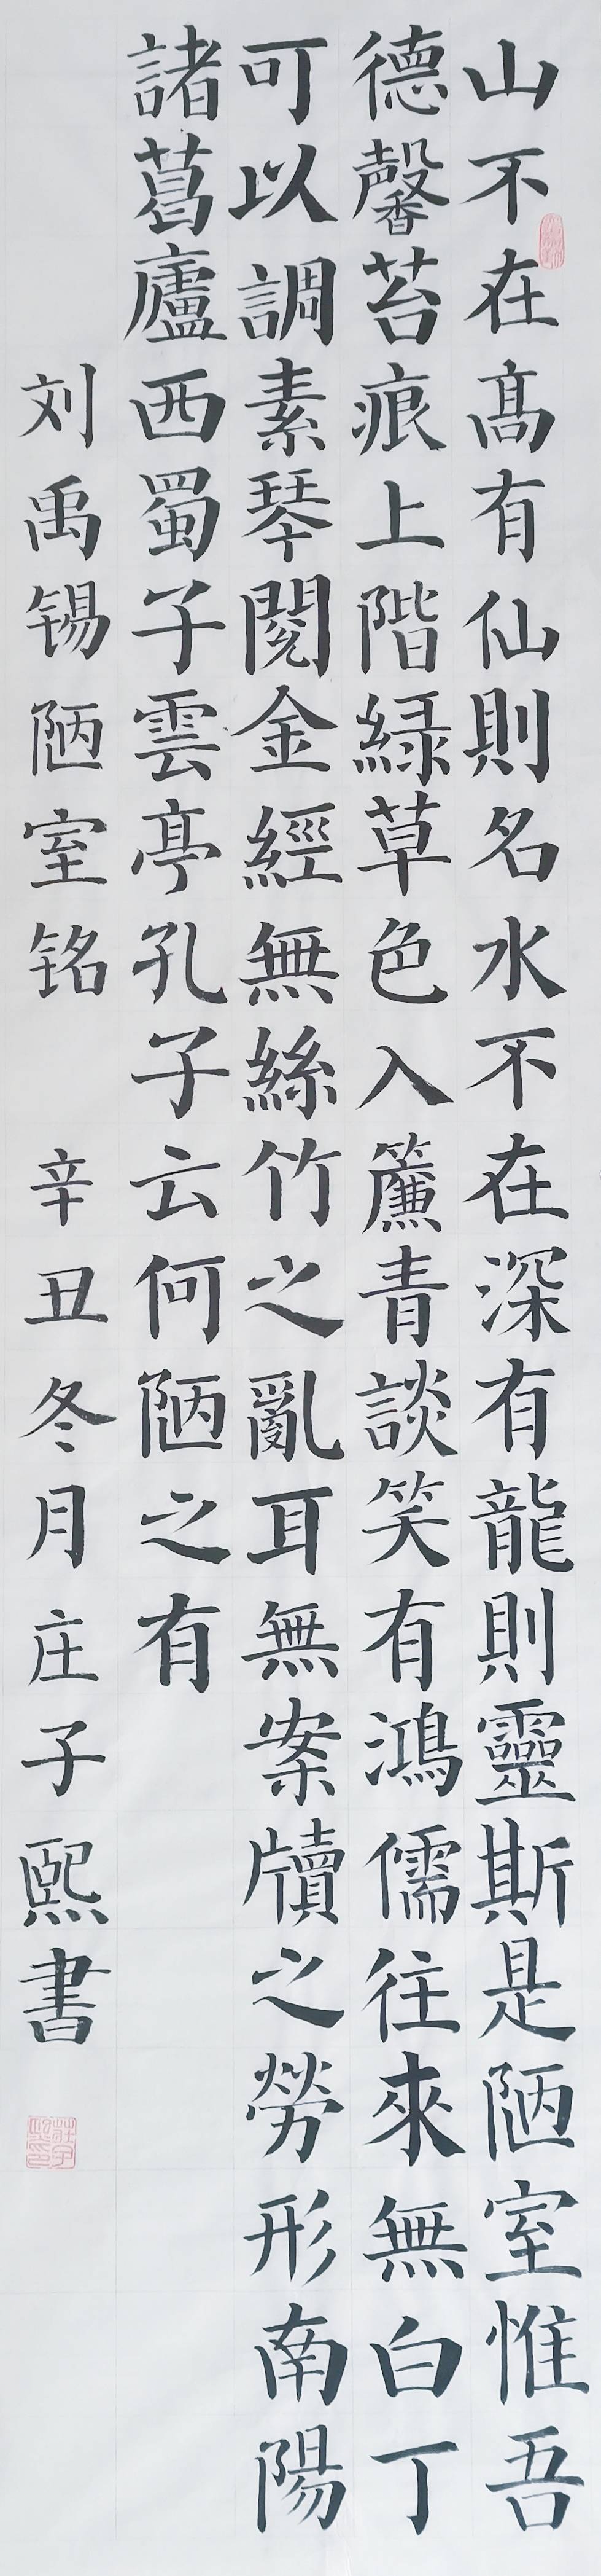 山不在高有仙則名水不在深有龍則靈斯是陋室惟吾
德馨苔痕上階緑草色入簾青談笑有鴻儒往來無白丁
可以調素琴閱金經無絲竹之亂耳無案牘之勞形南陽
諸葛廬西蜀子雲亭孔子云何陋之有
刘禹锡陋室铭 辛丑冬月庄子熙書